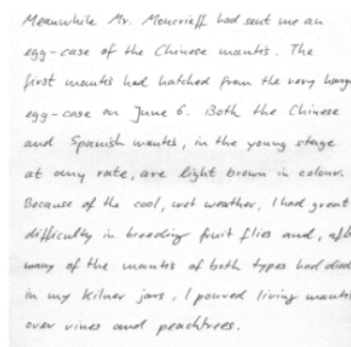 Meanwhile Mr. Moncrieff had sent me an
egg-case of the Chinese mantis. The
first mantis had hatched from the very
egg-case on June 6. Both the Chinese
and Spanish mantis, in the young stage
at any rate, are light brown in colour.
Because of the cool, wet weather, I had great
difficulty in breeding fruit flies and,
many of the mantis of both types had died
in my Kilner jars, I poured living mantis
over vines and peachtrees.